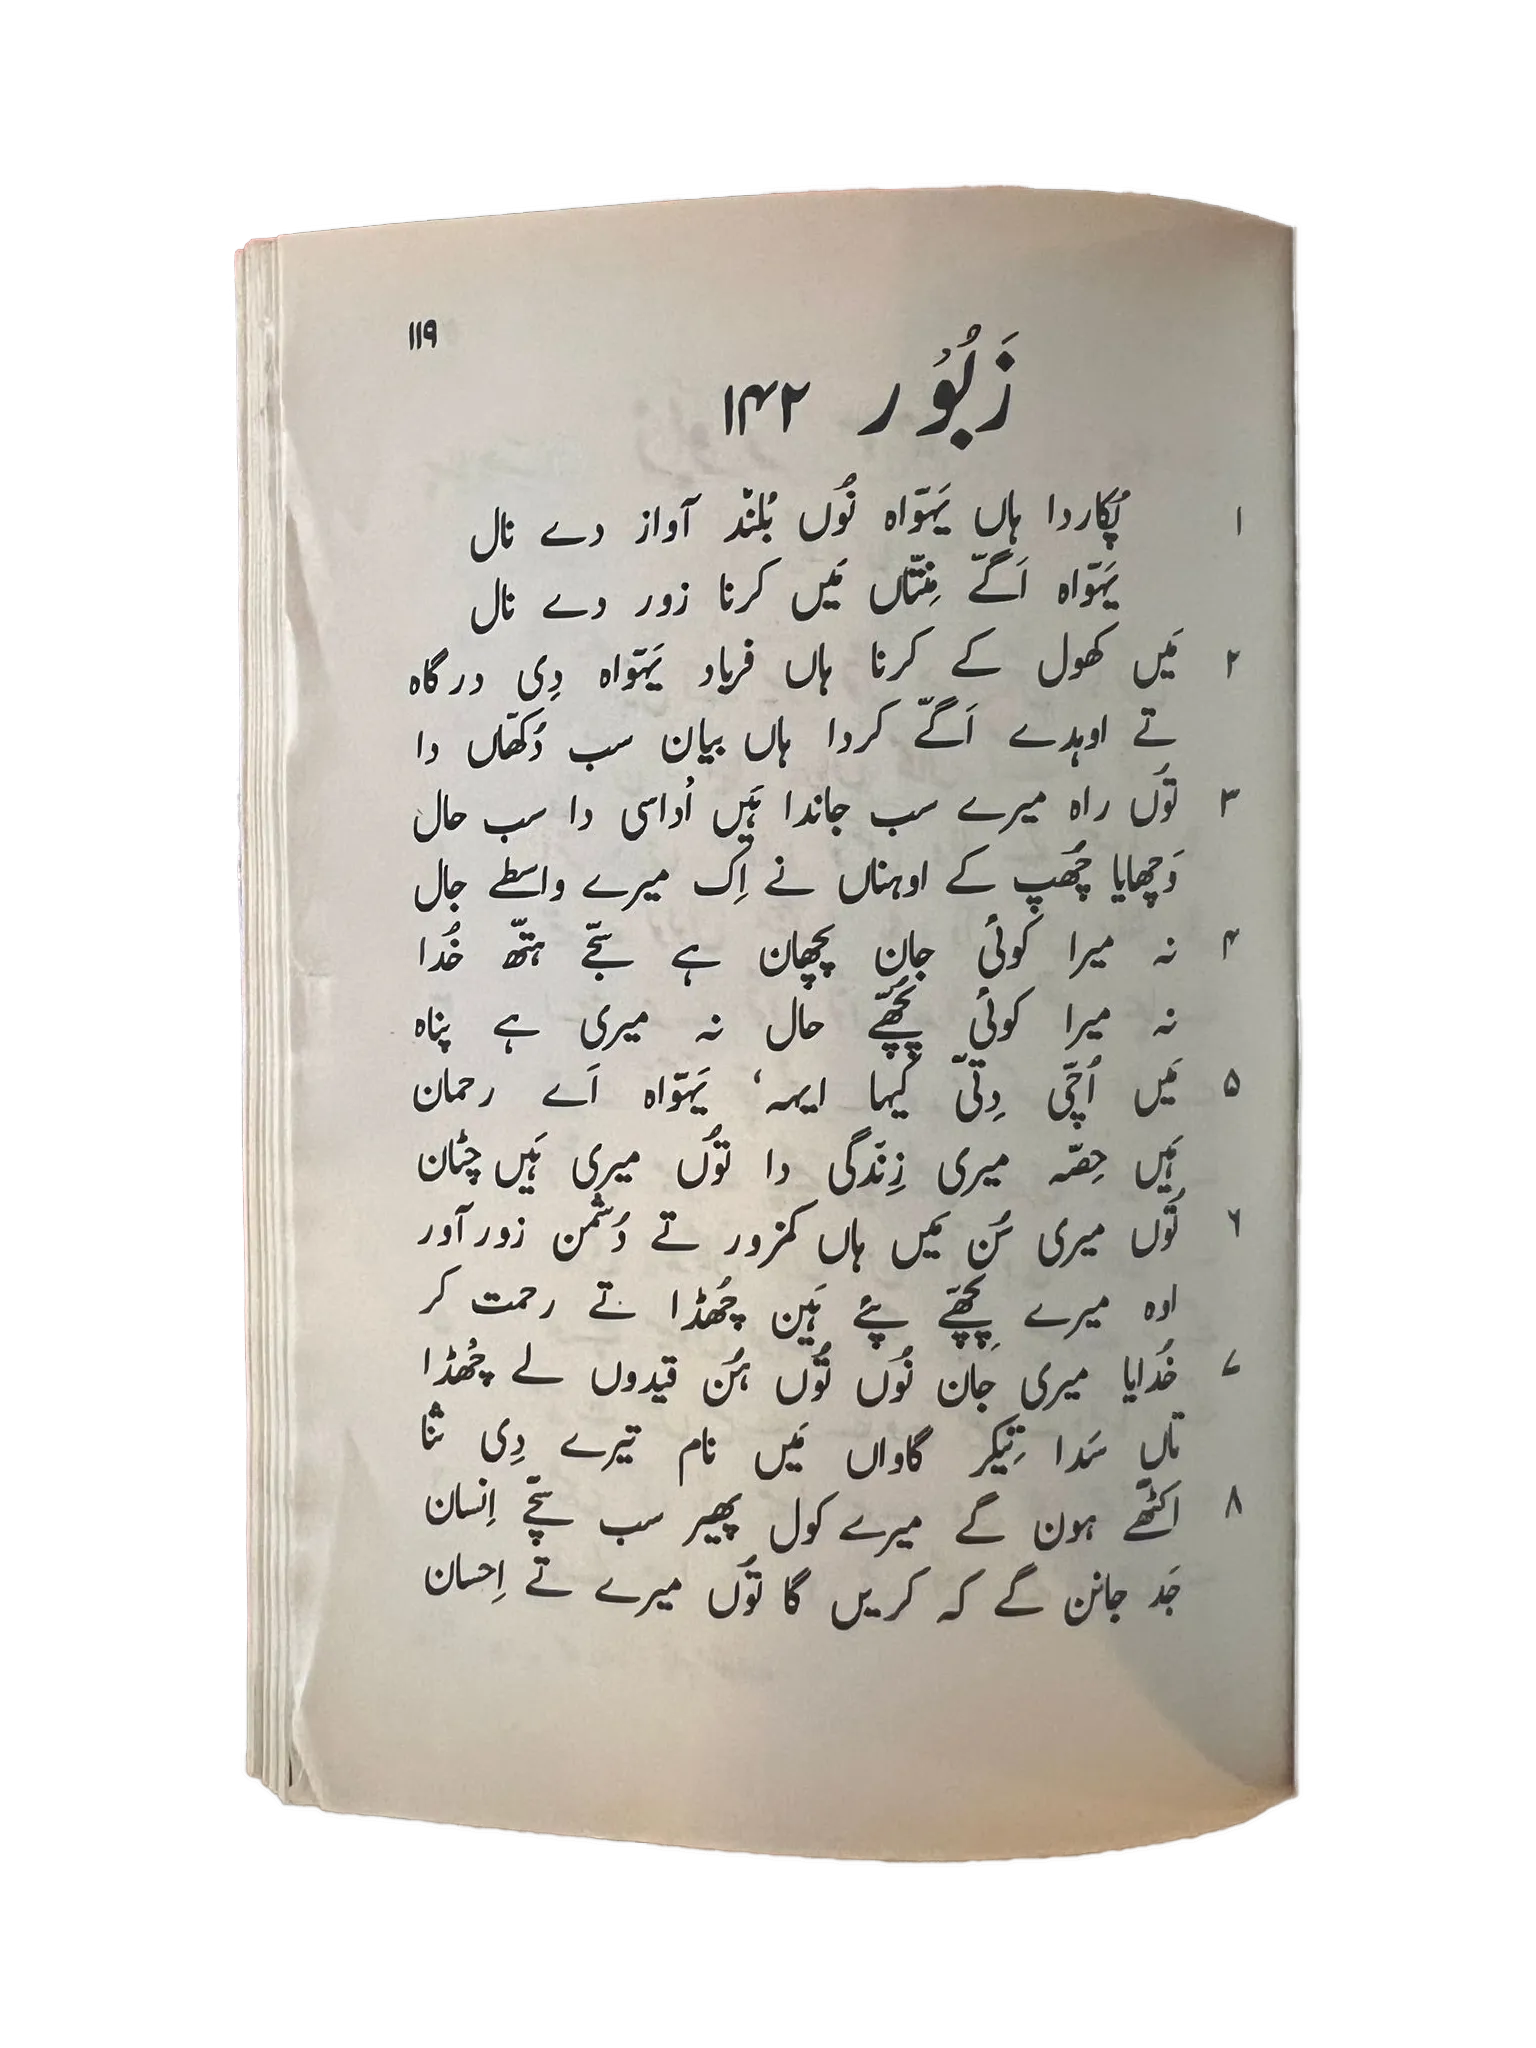 ۱۱۹
زَبُوُر ۱۴۲
۱ پُکاردا ہاں یَہوّاہ نُوں بُلنّد آواز دے نال
یَہوّاہ اَگّے مِنتّاں مَیں کرنا زور دے نال
۲ مَیں کھول کے کرنا ہاں فریاد یَہوّاہ دِی درگاہ
تے اوہدے اَگّے کردا ہاں بیان سب دُکھّاں دا
۳ تُوں راہ میرے سب جاندا ہَیں اُداسی دا سب حال
وَچھایا چُھپ کے اوہناں نے اِک میرے واسطے جال
۴ نہ میرا کوئی جان پچھان ہے سجّے ہتّھ خُدا
نہ میرا کوئی پُچھّے حال نہ میری ہے پناہ
۵ مَیں اُچّی دِتّی کیہا ایہہ‘ یَہوّاہ اَے رحمان
ہَیں حِصّہ میری زِنّدگی دا تُوں میری ہَیں چٹان
۶ تُوں میری سُن مَیں ہاں کمزور تے دُشمن زور آور
اوہ میرے پِچھّے پئے ہَین چُھڈا تے رحمت کر
۷ خُدایا میری جان نُوں تُوں ہُن قیدوں لے چُھڈا
تاں سَدا تِیکر گاواں مَیں نام تیرے دِی ثنا
۸ اَکٹھّے ہون گے میرے کول پھیر سب سچّے اِنسان
جَد جانن گے کہ کریں گا تُوں میرے تے اِحسان